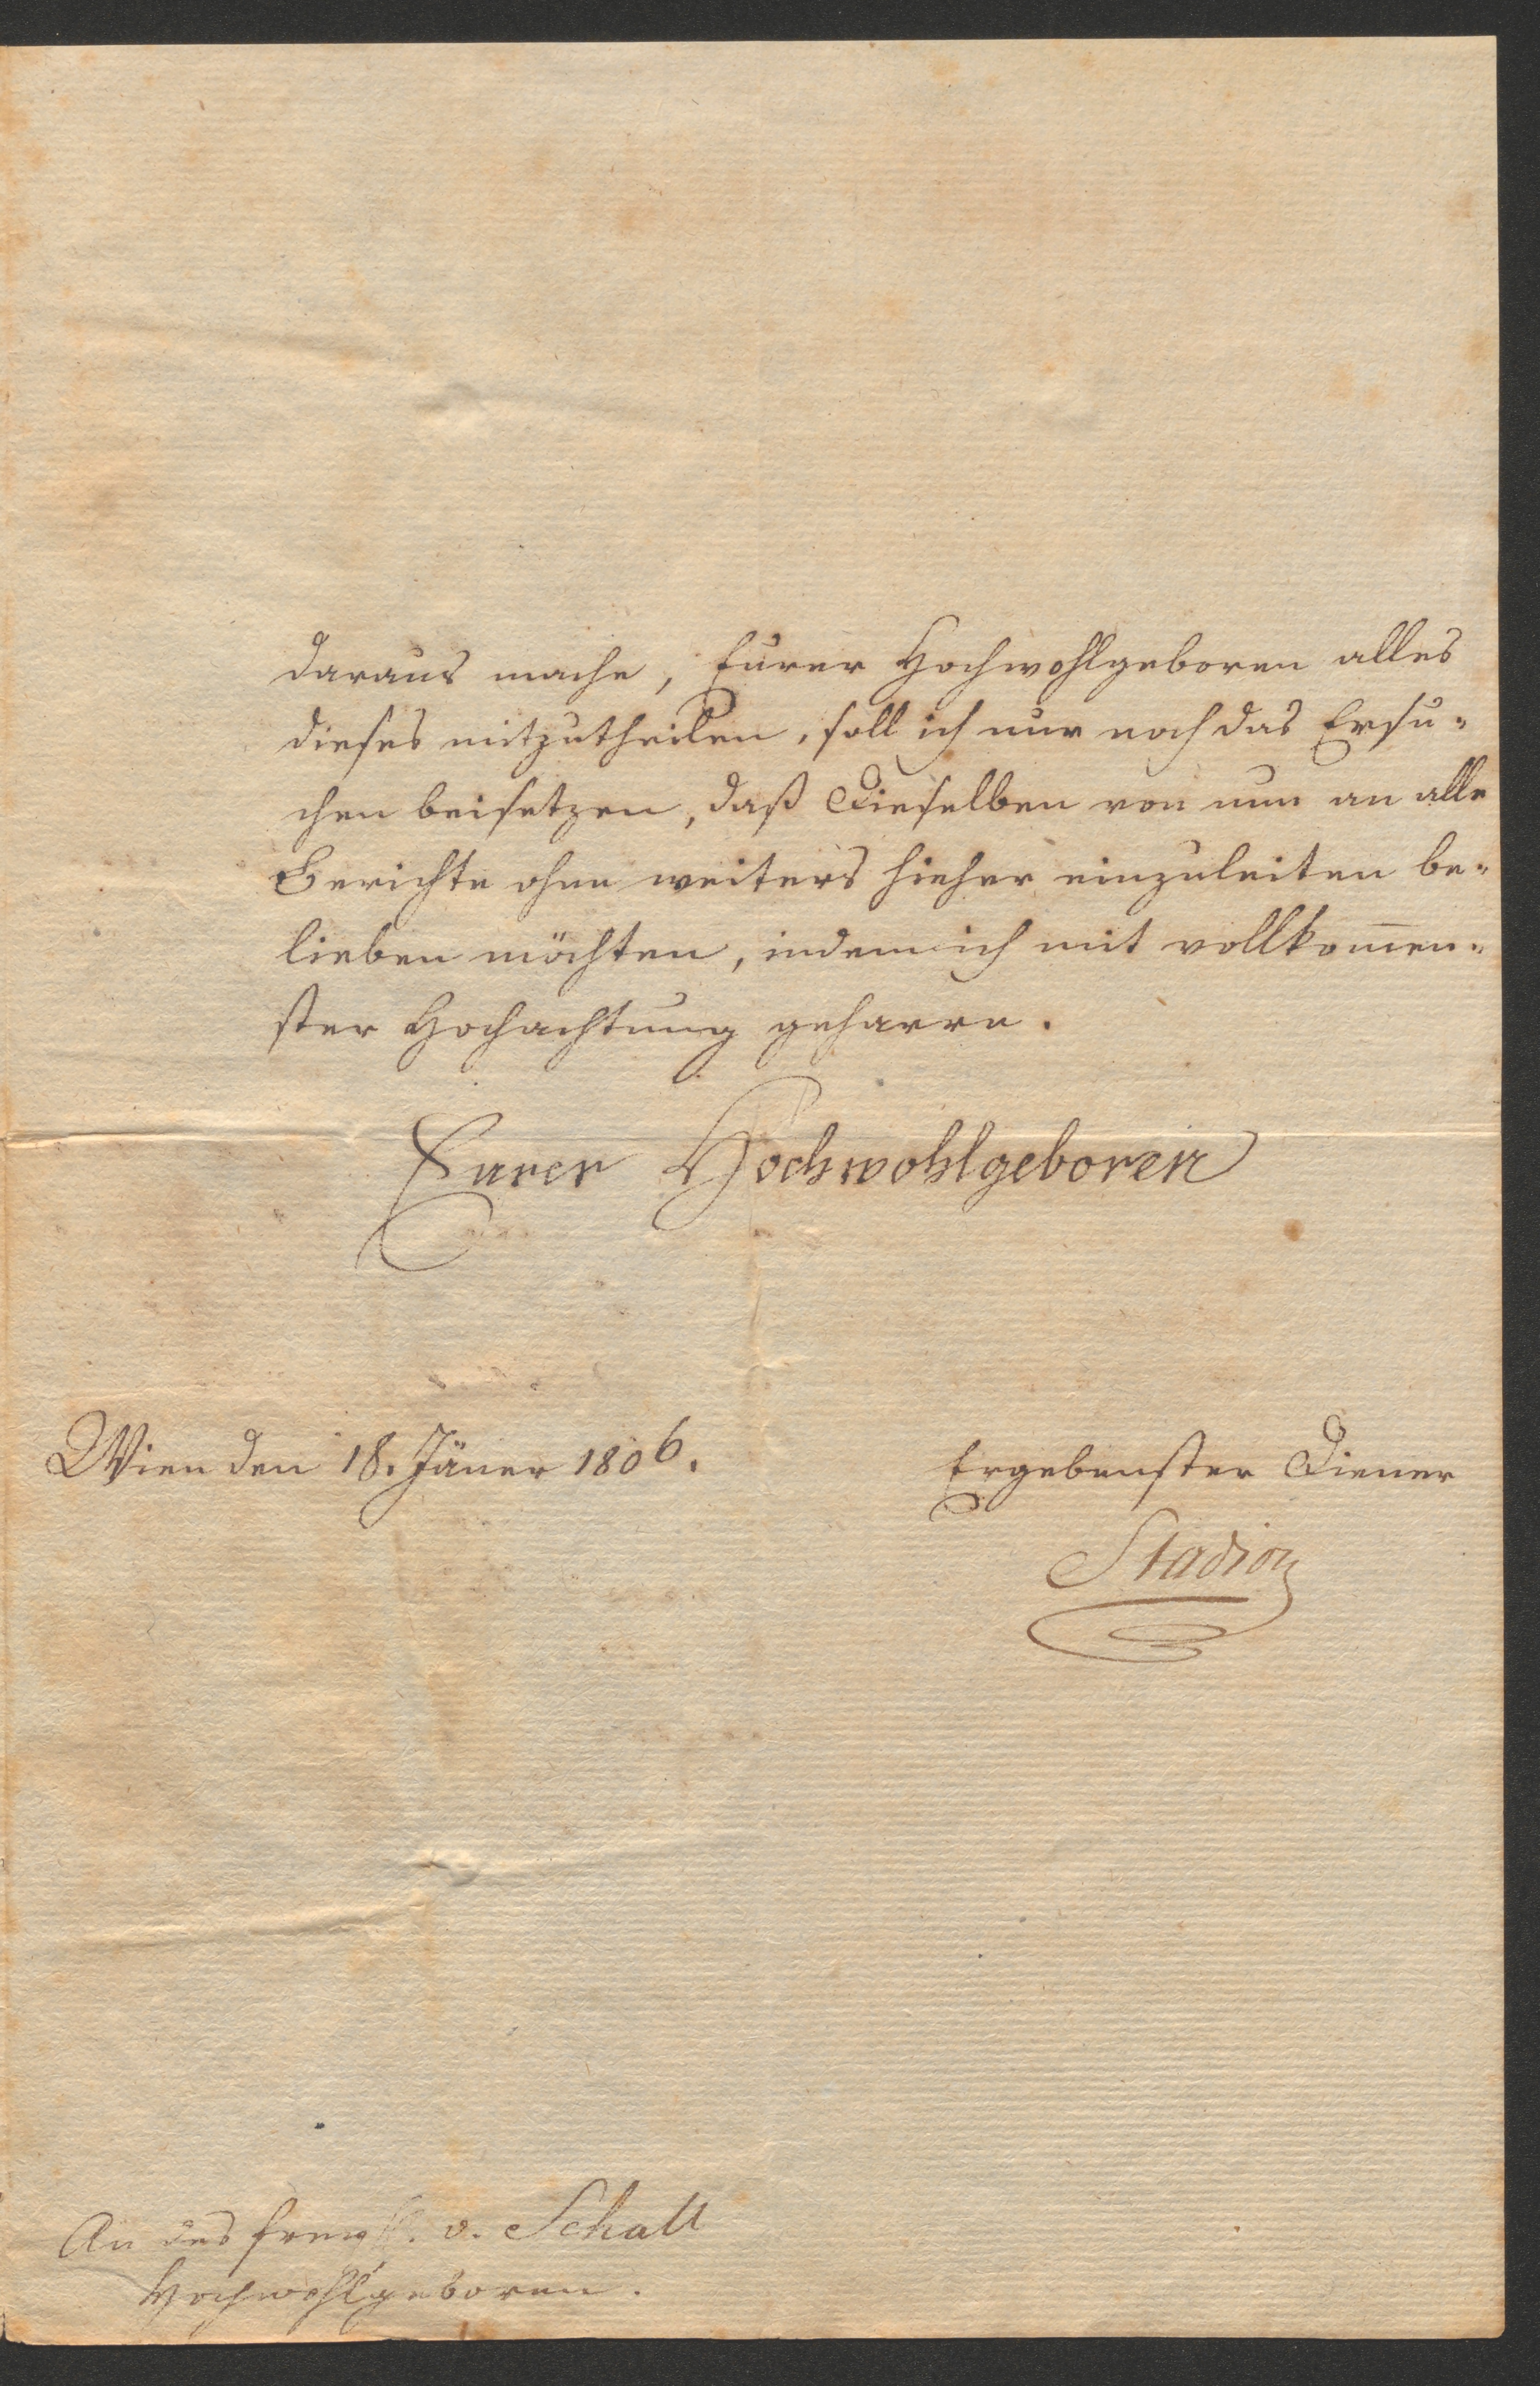 daraus mache, Eurer Hochwohlgeboren alles
dieses mitzutheilen, soll ich nur noch das Ersu-
chen beisetzen, daß Dieselben von nun an alle
Berichte ohne weiters hieher einzuleiten be-
lieben möchten, indem ich mit vollkom̅en-
ster Hochachtung geharre.
Eurer Hochwohlgeboren
Wien den 18. Jäner 1806.
Ergebenster Diener
Stadion
An des v. Schall
Hochwohlgeboren.